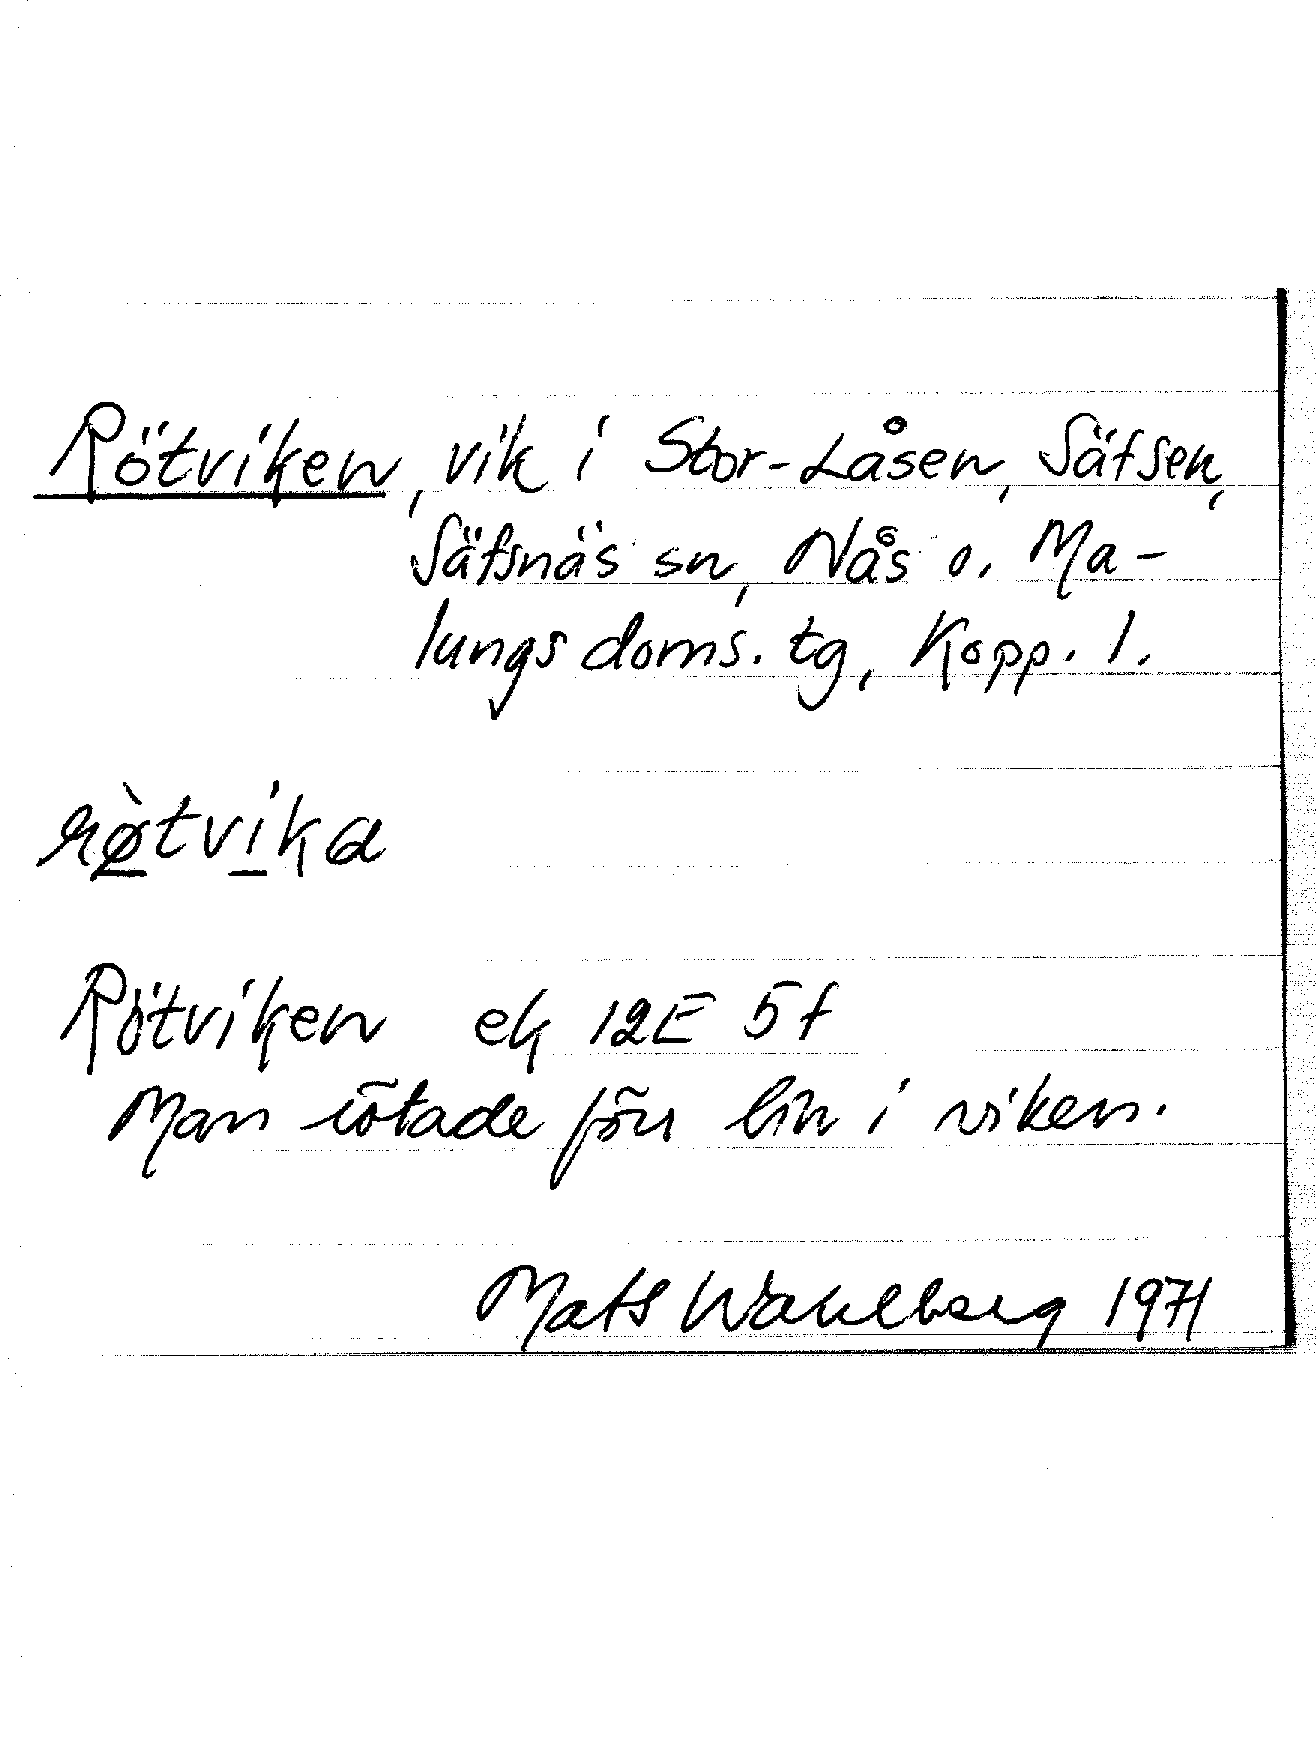 Rötviken, vik i Stor-Låsen, Säfsen,
Säfsnäs sn, Nås o. Ma-
lungs doms. tg, Kopp. l.
rø̀tvika
Rötviken ek 12E 5f
Man rötade förr lin i viken.
Mats Wahlberg 1971